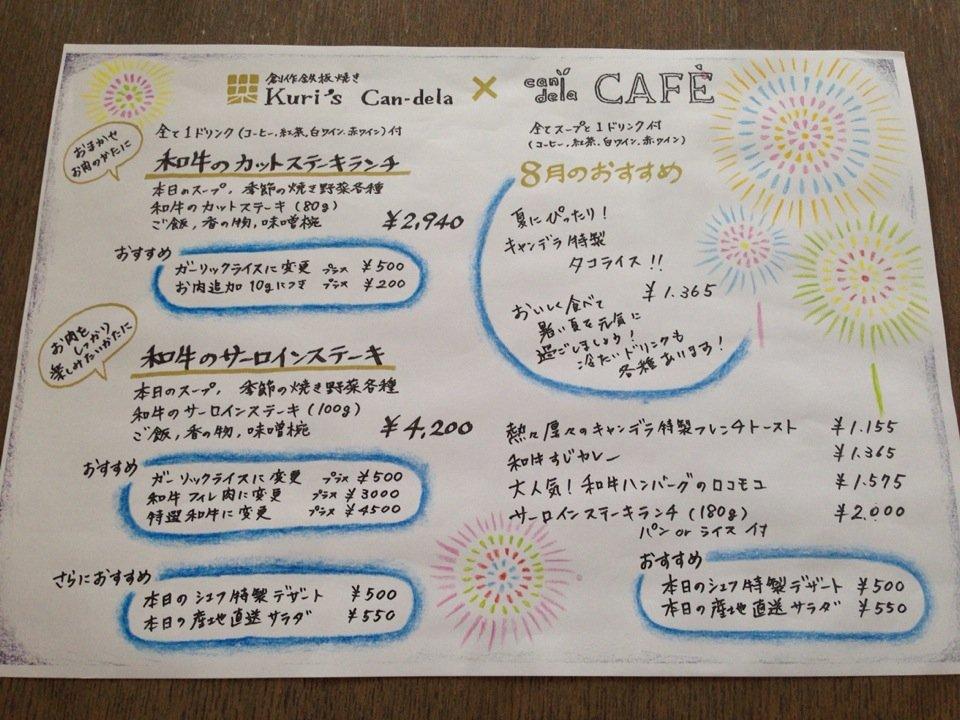 創作鉄板焼き
Kuri's Can-dela × candela CAFÈ
全て1ドリンク(コーヒー,紅茶,白ワイン,赤ワイン)付
おまかせ
お肉のかたに
和牛のカットステーキランチ
本日のスープ,季節の焼き野菜各種
和牛のカットステーキ(80g)
ご飯,香の物,味噌椀 ¥2,940
おすすめ
ガーリックライスに変更 プラス ¥500
お肉追加10gにつき プラス ¥200
お肉を
しっかり
楽しみたいかたに
和牛のサーロインステーキ
本日のスープ,季節の焼き野菜各種
和牛のサーロインステーキ(100g)
ご飯,香の物,味噌椀 ¥4,200
おすすめ
ガーリックライスに変更 プラス ¥500
和牛フィレ肉に変更 プラス ¥3000
特選和牛に変更 プラス ¥4500
さらにおすすめ
本日のシェフ特製デザート ¥500
本日の産地直送サラダ ¥550
全てスープと1ドリンク付
(コーヒー,紅茶,白ワイン,赤ワイン)
8月のおすすめ
夏にぴったり!
キャンデラ特製
タコライス!!
¥1.365
おいしく食べて
暑い夏を元気に
過ごしましょう!
冷たいドリンクも
各種あります!
熱々厚々のキャンデラ特製フレンチトースト ¥1.155
和牛すじカレー ¥1.365
大人気!和牛ハンバーグのロコモコ ¥1.575
サーロインステーキランチ(180g) ¥2.000
パン or ライス 付
おすすめ
本日のシェフ特製デザート ¥500
本日の産地直送サラダ ¥550